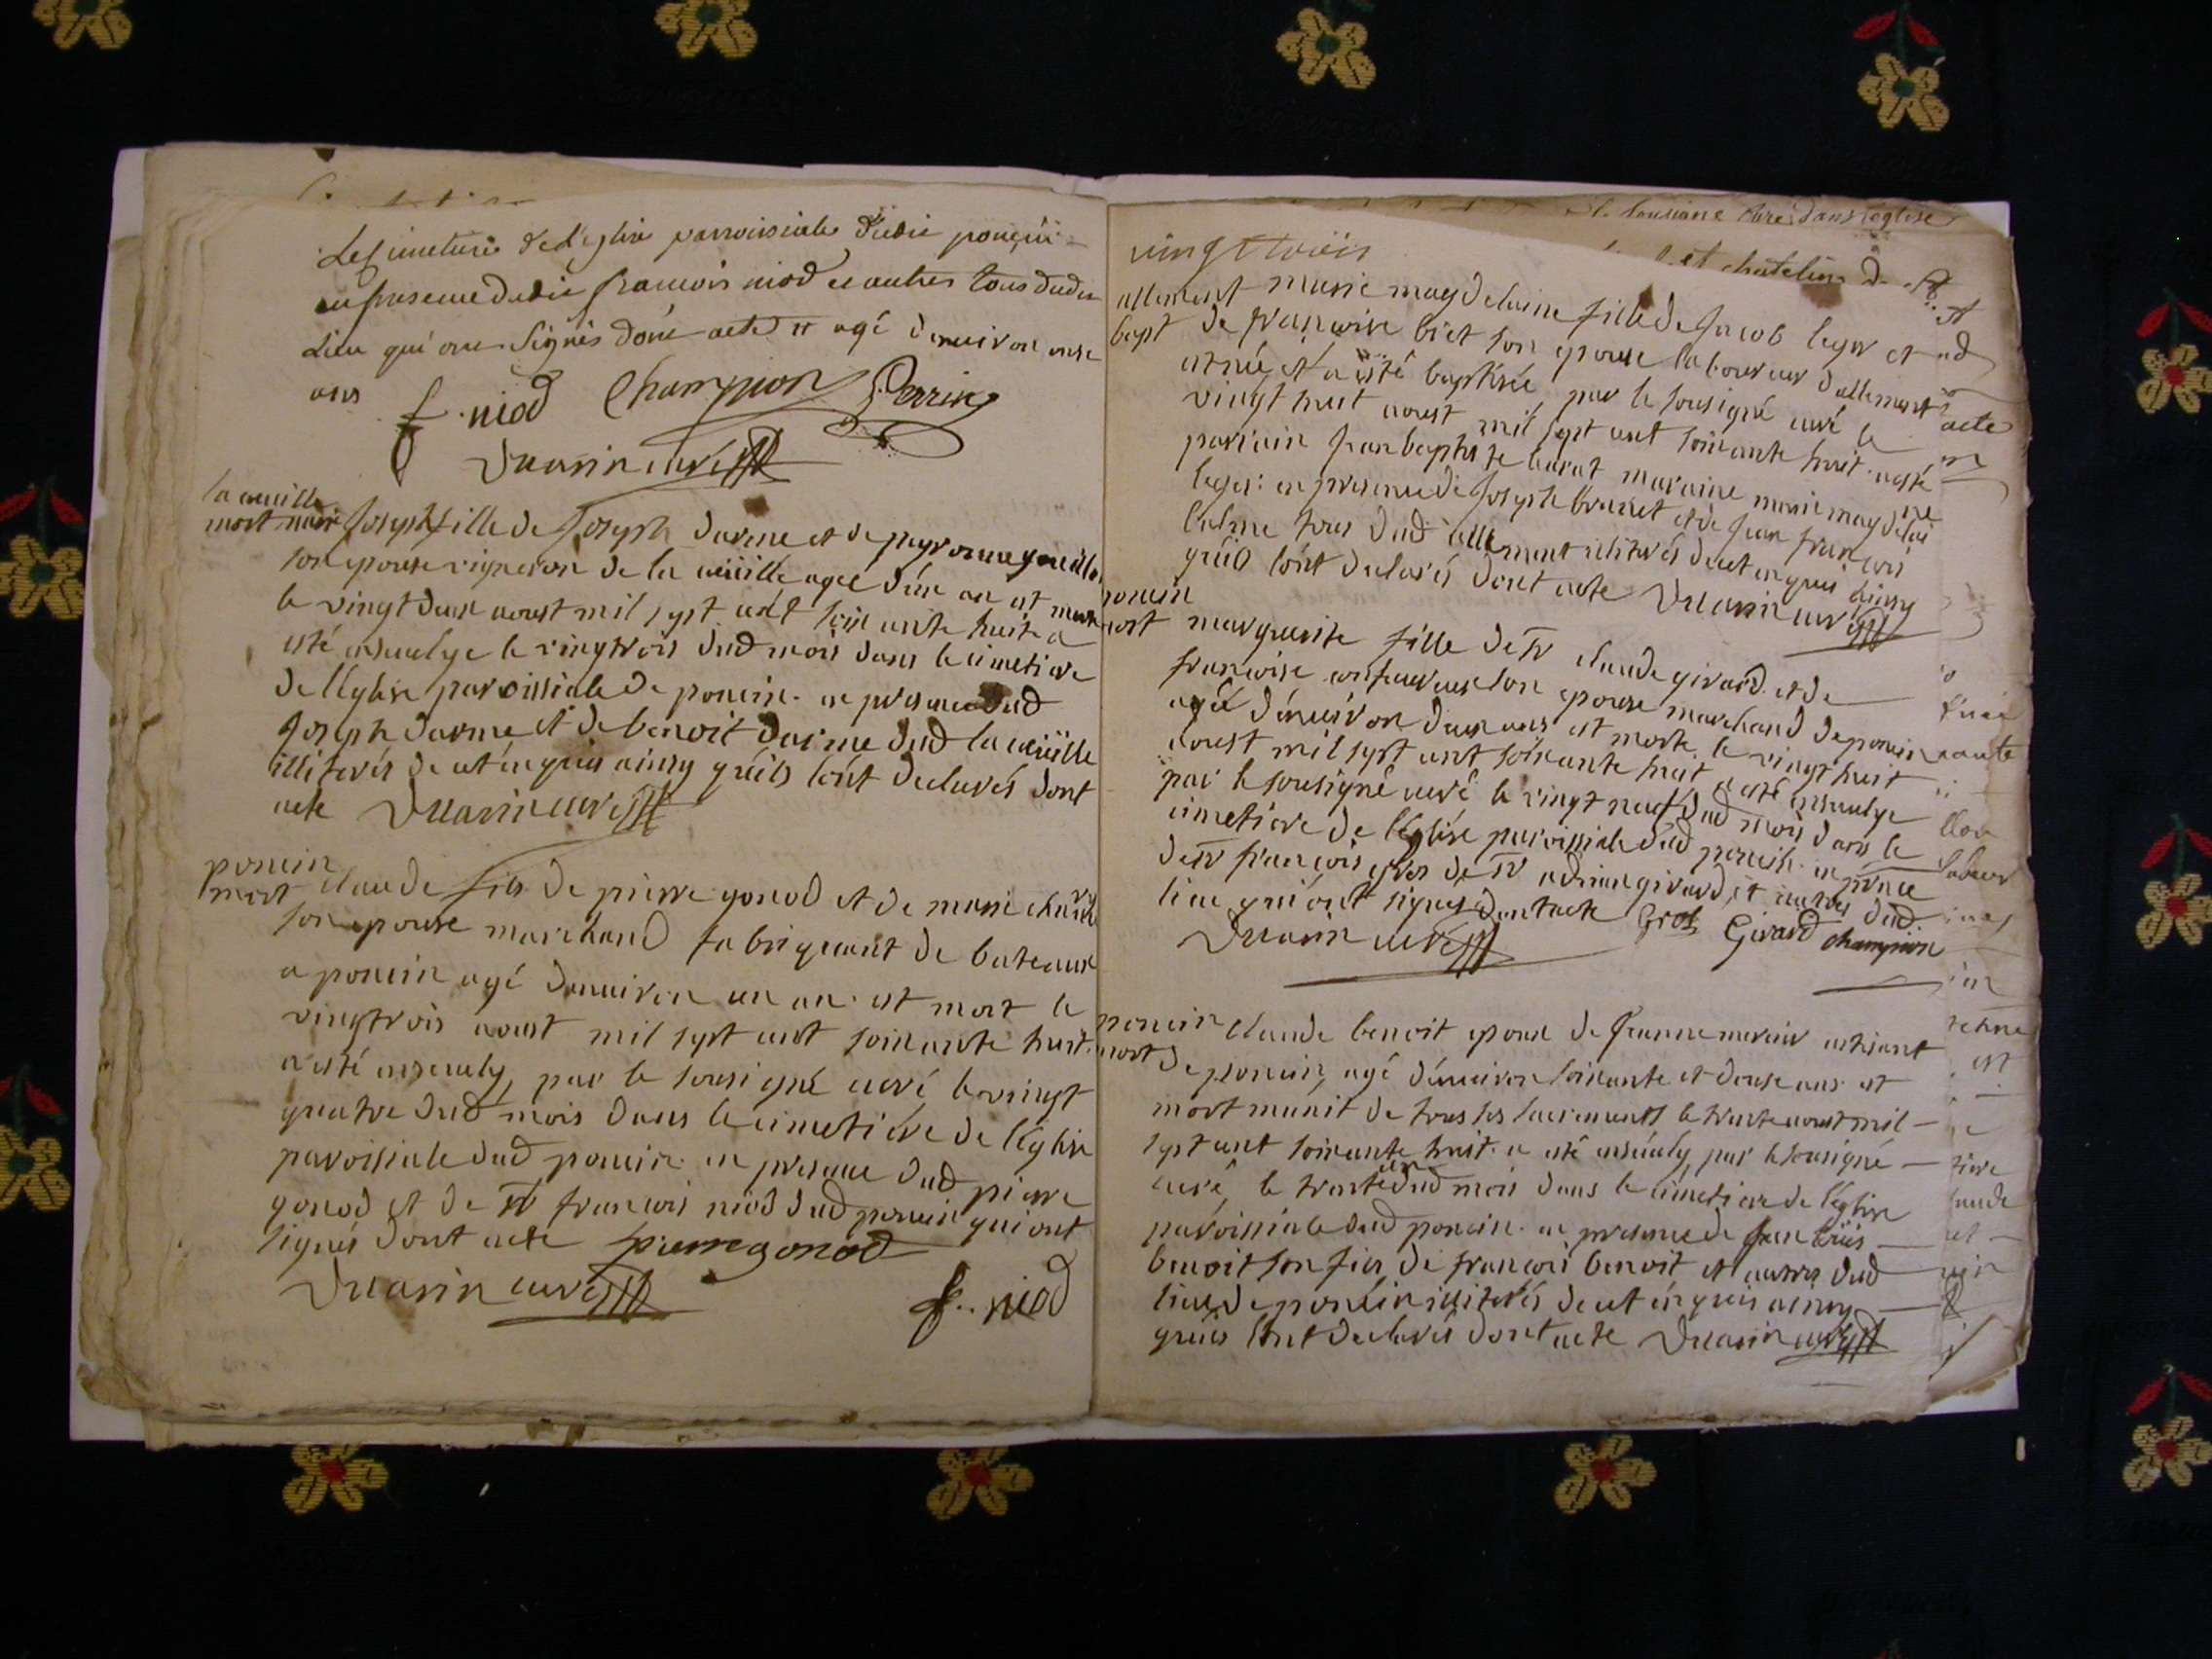 Le cimetiere de l'eglise parroissiale dudit
en presence dudit francois niod et autres tous dudit
Lieu qui ont Signés donc acte agé denviron onse
ans f. niod Champion Perrin
Duarin curé
la cueille
mort Joseph fille de Joseph darme et de peyronne
son epouse vigneron de la cuëille agee d'un an est morte
le vingt deux aoust mil sept cent soixante huit a
esté ensevelye le vingtrois dud mois dans le cimetiere
de l'Eglise paroissiale de poncin. en presence dud
Joseph darme et de benoit darme dud la cuëille
illiterés de ce enquis ainsy qu'ils l'ont declarés dont
acte Duarin curé
poncin
mort claude fils de pierre gonod et de marie
son epouse marchand fabriquant de bateaux
a poncin agé denviron un an. est mort le
vingtrois aoust mil sept cent soixante huit.
a esté ensevely, par le sousigné curé le vingt
quatre dud mois dans le cimetiére de l'Eglise
paroissiale dud poncin. en presence dud pierre
gonod et de sr francois niod dud poncin qui ont
signés dont acte pierre gonod
Duarin curé f. niod
vingt trois
allement marie magdelaine fille de Jacob leger et
bapt de francoise biet son epouse laboureur d'allement
est née et a esté baptisée par le sousigné curé le
vingt huit aoust mil sept cent soixante huit. a esté
parrain Jean baptiste maraine marie magdelaine
leger: en presence de Joseph brunet et de Jean francois
tous dud allement illiterés de ce enquis ainsy
qu'ils l'ont declarés dont acte Duarin curé
poncin
mort marguerite fille de sr claude girard et de
francoise son epouse marchand de poncin
agée d'environ deux ans est morte le vingt huit
aoust mil sept cent soixante huit a esté ensevelye
par le sousigné curé le vingt neuf dud mois dans le
cimetiere de l'Eglise paroissiale dud poncin. en presence
de sr francois gros de sr adrian girard, et autres dud
lieu qui ont signes dont acte Gros Girard champion
Duarin curé
poncin claude benoit epoux de Jeanne artisant
mort de poncin, agé d'environ soixante et douse ans est
mort munit de tous ses sacrements le trente aoust mil
sept cent soixante huit. a esté ensevely, par le sousigné
curé, le trente un dud mois dans le cimetiere de l'Eglise
paroissiale dud poncin. en presence de Jean
benoit son fils de francois benoit et autres dud
lieu de poncin illiterés de ce enquis ainsy
qu'ils l'ont declarés dont acte Duarin curé